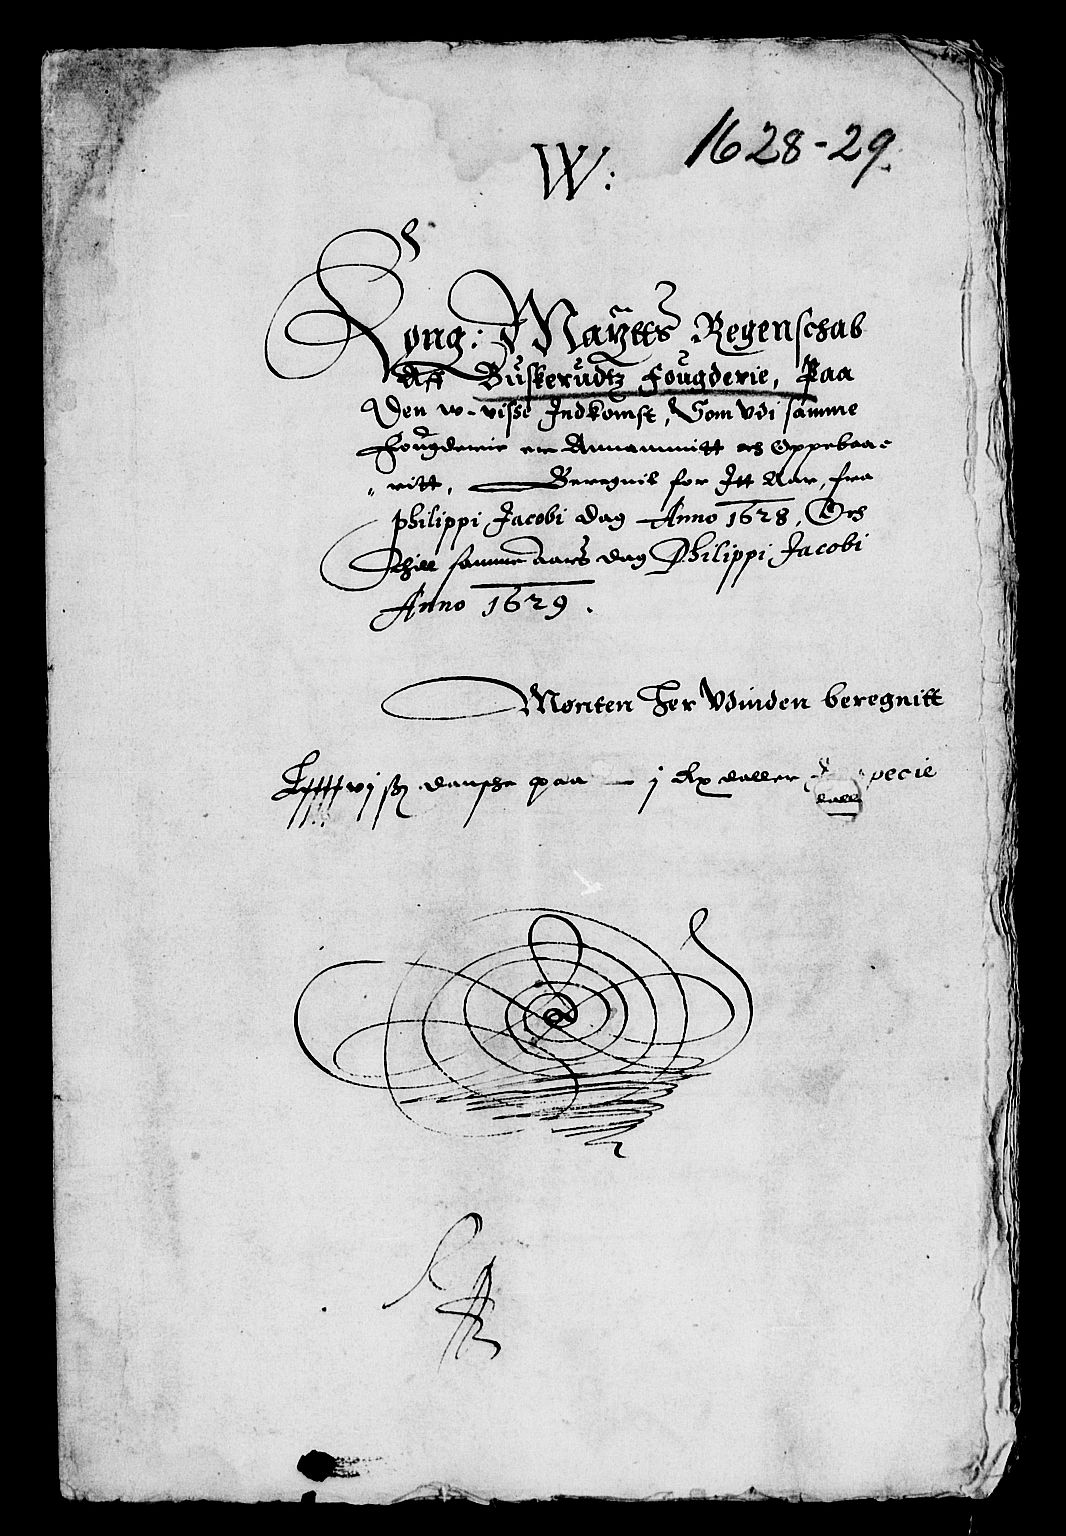 1628-29.
W:
Kong: Maÿtts Regenschab
Aff Buskerudtz Fougderie, Paa
Den w-visse Indkomst, Som Udi samme
Fougderie er Annammitt och Oppebaa-
ritt, Beregnit for Itt Aar, fra
Philippi Jacobi dag Anno 1628, Och
thill samme aars dag Philippi Jacobi
Anno 1629.
Mønten her Udinden beregnitt
vj ß danske paa j Rx daller pecie
dall